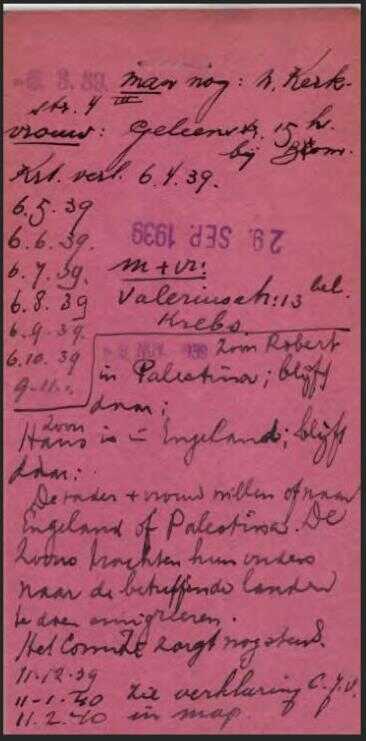 man nog: N. Kerk-
str. 4 III
vrouw: Geleenstr. 15 h.
bij
Krt. verl. 6.4.39.
6.5.39
6.6.39.
29 SEP. 1939
6.7.39. m + vr:
6.8.39 Valeriusstr: 13 bel.
6.9.39. Krebs.
6.10.39 zoon Robert
9-11-. in Palestina; blijft
daar;
zoon
Hans is in Engeland; blijft
daar:
De vader + vrouw willen of naar
Engeland of Palestina. De
zoons trachten hun ouders
naar de betreffende landen
te doen emigreren.
Het Comité zorgt nog steeds.
11-12-39
11-1-40 zie verklaring C.J.V.
11.2.40 in map.